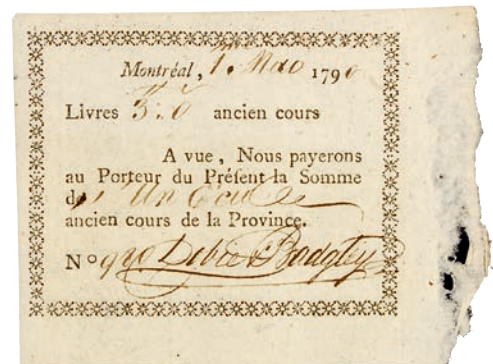 Montréal, 1. Mao 1790
Livres 3:0 ancien cours
A vue, Nous payerons
au Porteur du Préſent la Somme
de Un Ecu
ancien cours de la Province.
No 920 Dobie & Badgley